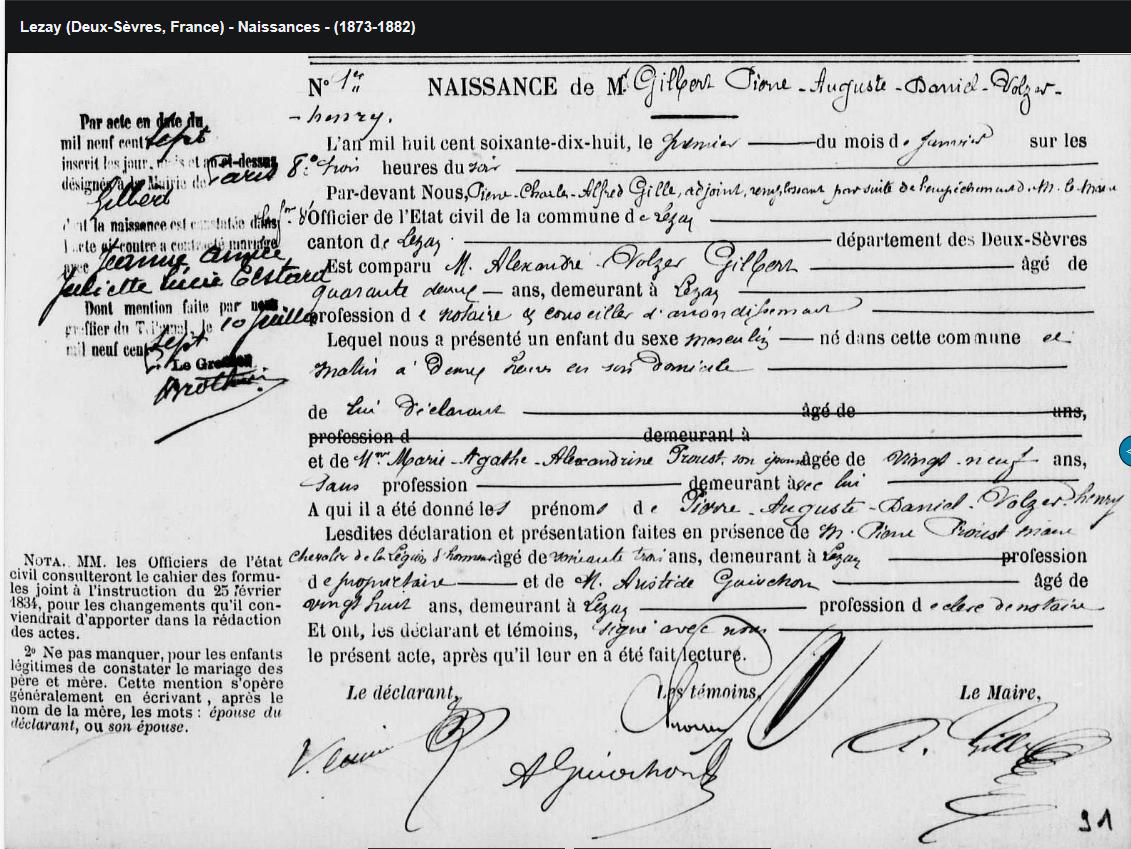 Lezay (Deux-Sèvres, France) - Naissances - (1873-1882)
N° 1er NAISSANCE de M. Gilbert Pierre - Auguste - Daniel - Volzer -
- henry.
L'an mil huit cent soixante-dix-huit, le premier du mois de Janvier sur les
trois heures du soir
Par-devant Nous, Pierre-Charles-Alfred Gille, adjoint, remplissant par suite de l'empêchement de M. le Maire
Officier de l'Etat civil de la commune de Lezay
canton de Lezay département des Deux-Sèvres
Est comparu M. Alexandre - Volzer Gilbert âgé de
quarante deux ans, demeurant à Lezay
profession de notaire & conseiller d'arrondissement
Lequel nous a présenté un enfant du sexe masculin né dans cette commune ce
matin à deux heures en son domicile
de lui déclarant âgé de ans,
profession d demeurant à
et de Marie-Agathe-Alexandrine Proust, son épouse âgée de vingt-neuf ans,
sans profession demeurant avec lui
A qui il a été donné les prénoms de Pierre - Auguste - Daniel - Volzer - henry
Lesdites déclaration et présentation faites en présence de M. Pierre Proust maire
chevalier de la Légion d'honneur âgé de soixante trois ans, demeurant à Lezay profession
de propriétaire et de M. Aristide Guischon âgé de
vingt huit ans, demeurant à Lezay profession de clerc de notaire
Et ont, les déclarant et témoins, signé avec nous
le présent acte, après qu'il leur en a été fait lecture.
Le déclarant, Les témoins, Le Maire,
A. Gille
91
Par acte en date du
mil neuf cent sept
inscrit les jour, mois et an ci-dessus
désignés à la Mairie de Paris
Gilbert
dont la naissance est constatée dans
l'acte ci-contre a contracté mariage
avec Jeanne Aimée
Juliette Lucie
Dont mention faite par nous
greffier du Tribunal, le 10 Juillet
mil neuf cent sept
Le Greffier
NOTA. MM. les Officiers de l'état
civil consulteront le cahier des formu-
les joint à l'instruction du 25 février
1834, pour les changements qu'il con-
viendrait d'apporter dans la rédaction
des actes.
2° Ne pas manquer, pour les enfants
légitimes de constater le mariage des
père et mère. Cette mention s'opère
généralement en écrivant, après le
nom de la mère, les mots : épouse du
déclarant, ou son épouse.